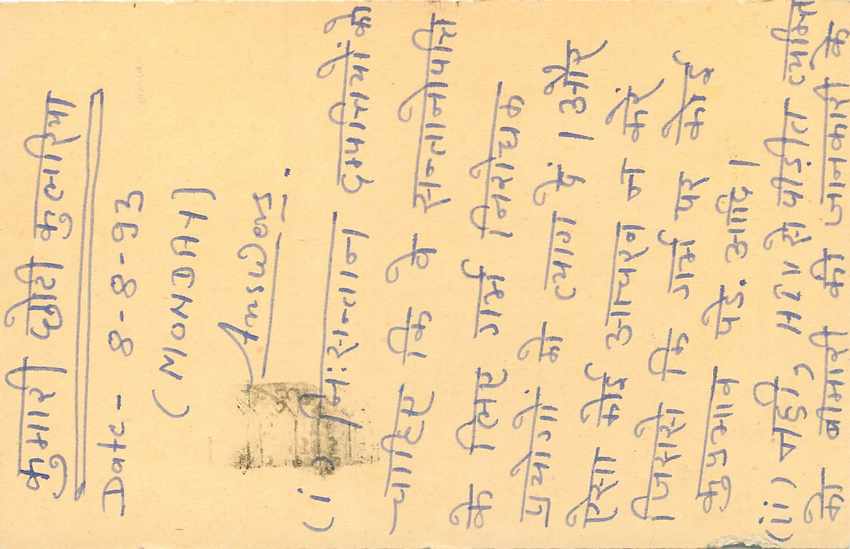 कुमारी छोटी कुलारिया
Date- 8-8-93
(MONDAY)
Answer.
(i) निःसन्तान दम्पत्तियों को
चाहिए कि वे सन्तानोत्पत्ति
के लिए गर्भ निरोधक
प्रयोगों को त्याग दें। और
ऐसा कोई आचरन न करें
जिससे कि गर्भ पर कोई
कुप्रभाव पडे. आदि।
(ii) नही, HIV से पीड़ीत व्यक्ति
को बीमारी की जानकारी के